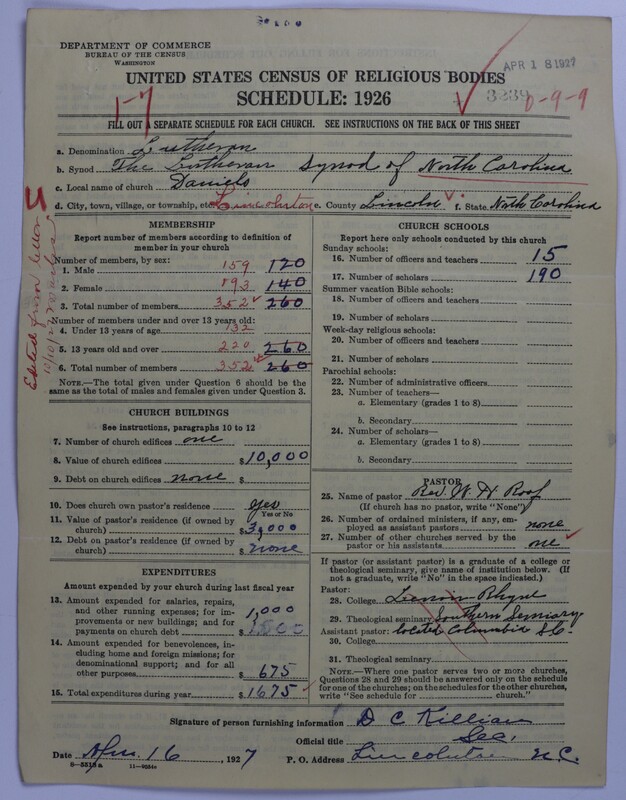 DEPARTMENT OF COMMERCE
BUREAU OF THE CENSUS
WASHINGTON
APR 18 1927
UNITED STATES CENSUS OF RELIGIOUS BODIES
SCHEDULE: 1926
1-7
3239
0-9-9
FILL OUT SEPARATE SCHEDULE FOR EACH CHURCH. SEE INSTRUCTIONS ON THE BACK OF THIS SHEET
a. Denomination Lutheran
b. Synod The Lutheran Synod of North Carolina
c. Local name of church Daniels
d. City, town, village, or township, etc. Lincolnton e. County Lincoln f. State North Carolina
Edited from letter
MEMBERSHIP
Report number of members according to definition of
member in your church
Number of members, by sex:
1. Male 159 120
2. Female 193 140
3. Total number of members 352 260
Number of members under and over 13 years old:
4. Under 13 years of age 132
5. 13 years old and over 220 260
6. Total number of members 352 260
NOTE.—The total given under Question 6 should be
the same as the total of males and females given under Question 3.
CHURCH BUILDINGS
See instructions, paragraphs 10 to 12
7. Number of church edifices one
8. Value of church edifices $10,000
9. Debt on church edifices none $
10. Does church own pastor's residence yes
Yes or No
11. Value of pastor's residence (if owned by
church) $3,000
12. Debt on pastor's residence (if owned by
church) $none
EXPENDITURES
Amount expended by your church during last fiscal year
13. Amount expended for salaries, repairs,
and other running expenses; for im-
provements or new buildings; and for
payments on church debt $ 1,000
14. Amount expended for benevolences,
including home and foreign missions; for
denominational support; and for all
other purposes $675
15. Total expenditures during year $1675
CHURCH SCHOOLS
Report here only schools conducted by this church
Sunday schools:
16. Number of officers and teachers 15
17. Number of scholars 190
Summer vacation Bible schools:
18. Number of officers and teachers
19. Number of scholars
Week-day religious schools:
20. Number of officers and teachers
21. Number of scholars
Parochial schools:
22. Number of administrative officers
23. Number of teachers—
a. Elementary (grades 1 to 8)
b. Secondary
24. Number of scholars—
a. Elementary (grades 1 to 8)
b. Secondary
PASTOR
25. Name of pastor Rev. W. H. Roof
(If church has no pastor, write "None")
26. Number of ordained ministers, if any, em-
ployed as assistant pastors none
27. Number of other churches served by the
pastor or his assistants one
If pastor (or assistant pastor) is a graduate of a college or
theological seminary, give name of institution below. (If
not a graduate, write "No" in the space indicated.)
Pastor:
28. College Lenoir Rhyne
29. Theological seminary Southern Semiary
Assistant pastor: located Columbia S.C.
30. College
31. Theological seminary
NOTE.—Where one pastor serves two or more churches,
Questions 28 and 29 should be answered only on the schedule
for one of the churches; on the schedules for the other churches,
write "See schedule for church."
Signature of person furnishing information D C Killian
Official title Sec.
Date Apr. 16, 1927 P. O. Address Lincolnton N.C.
8-5518a 11-9554